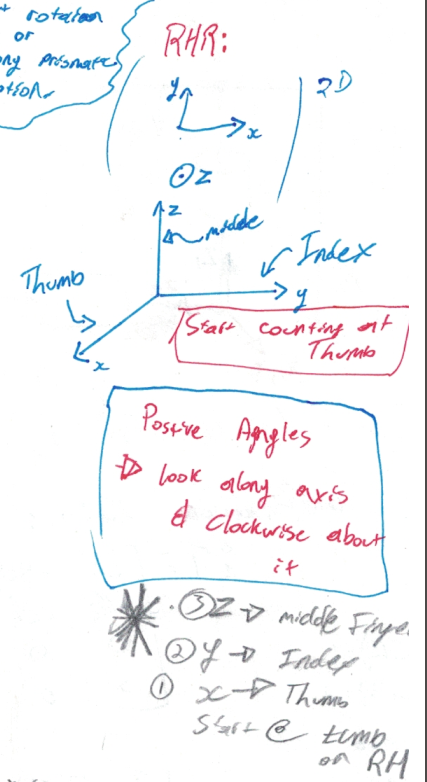 rotation
or
ny prismatic
otion.
RHR:
y
x
2D
⊙z
z
middle
Index
Thumb
y
x
Start counting at
Thumb
Postive Agngles
⇒ look along axis
& clockwise about
it
* ③ z → middle Finge
② y → Index
① x → Thumb
Start @ tumb
on RH